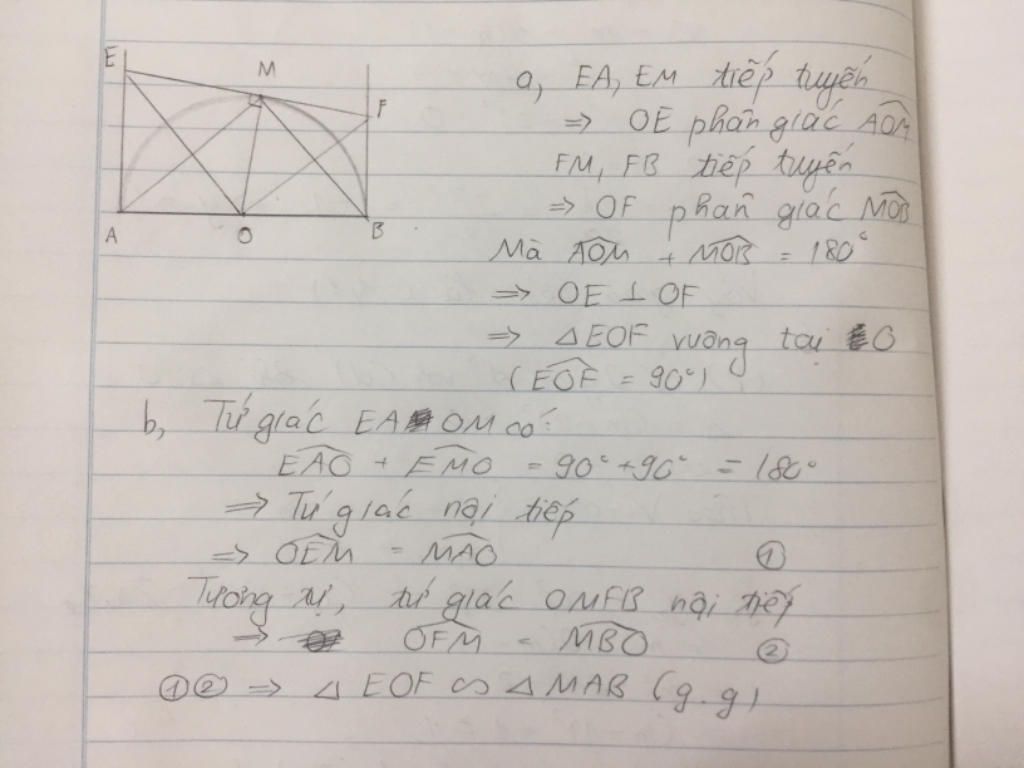 E
M
F
A
O
B
a, EA, EM tiếp tuyến
⇒ OE phân giác \widehat{AOM}
FM, FB tiếp tuyến
⇒ OF phân giác \widehat{MOB}
Mà \widehat{AOM} + \widehat{MOB} = 180°
⇒ OE ⊥ OF
⇒ △EOF vuông tại O
(\widehat{EOF} = 90°)
b, Tứ giác EAOM có:
\widehat{EAO} + \widehat{EMO} = 90° + 90° = 180°
⇒ Tứ giác nội tiếp
⇒ \widehat{OEM} = \widehat{MAO} ①
Tương tự, tứ giác OMFB nội tiếp
⇒ \widehat{OFM} = \widehat{MBO} ②
①② ⇒ △ EOF ∽ △ MAB (g.g)